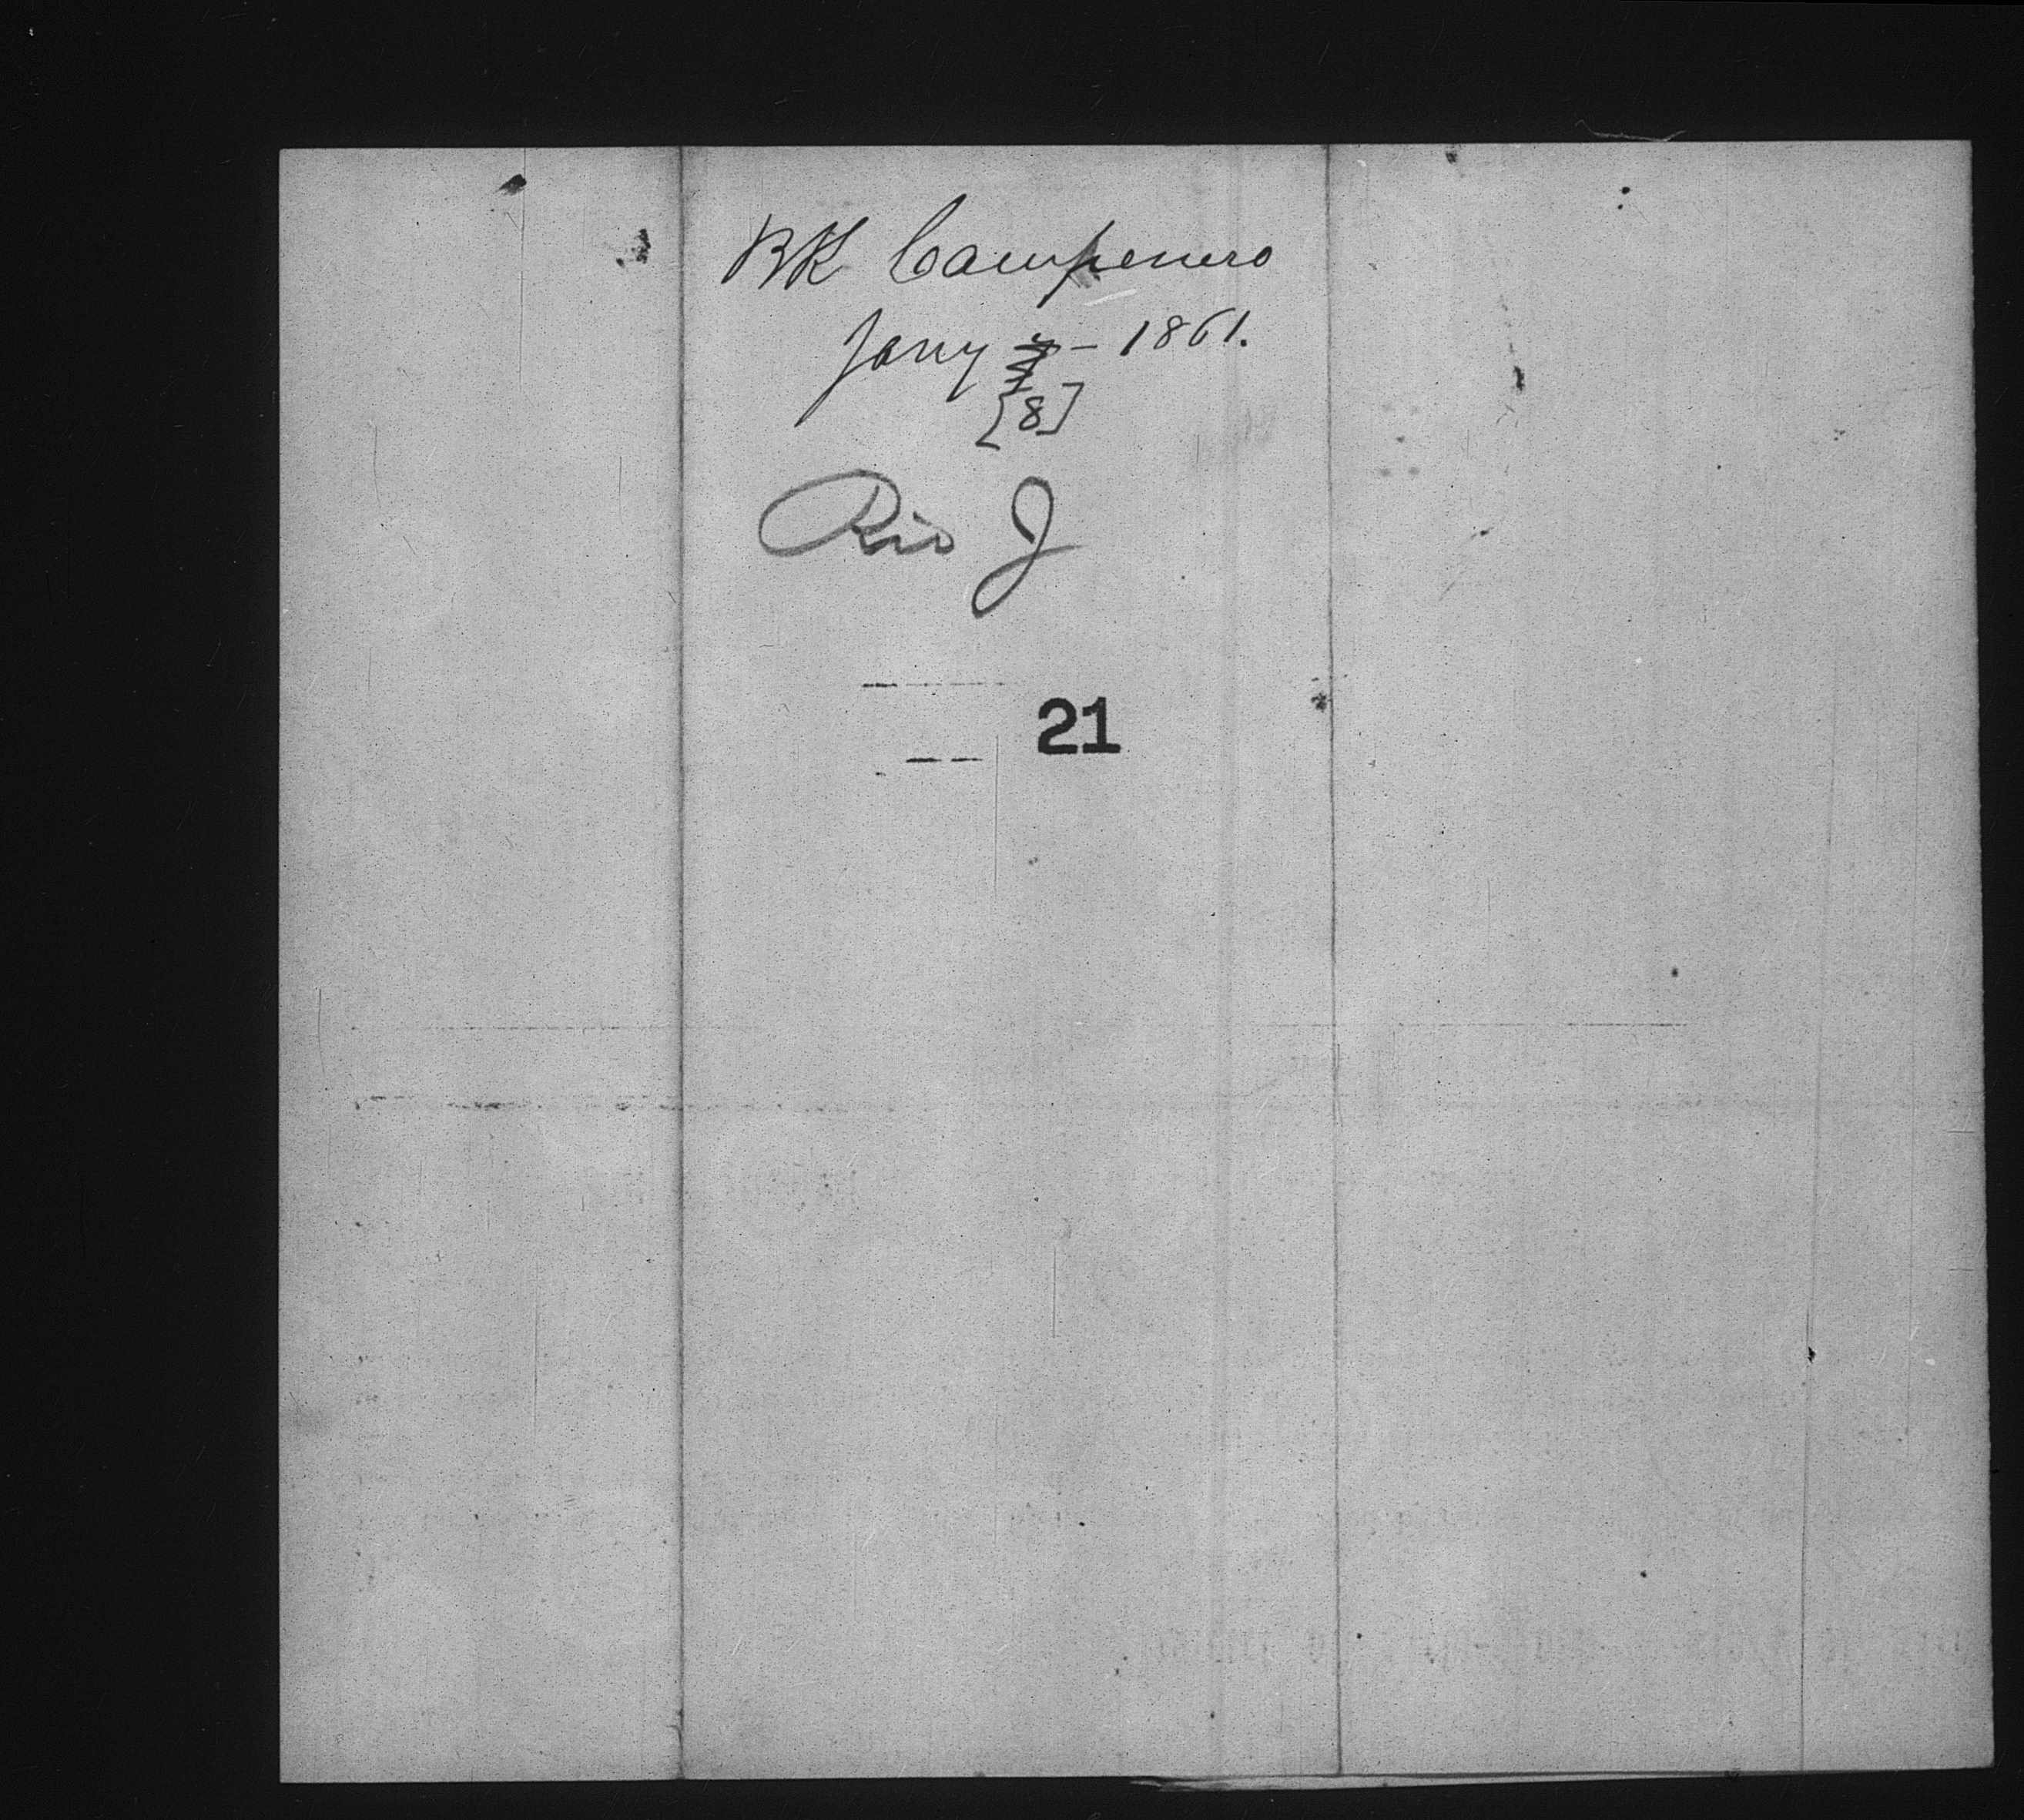 BK Campenero
Jany – 1861.
[8]
Rio J
21